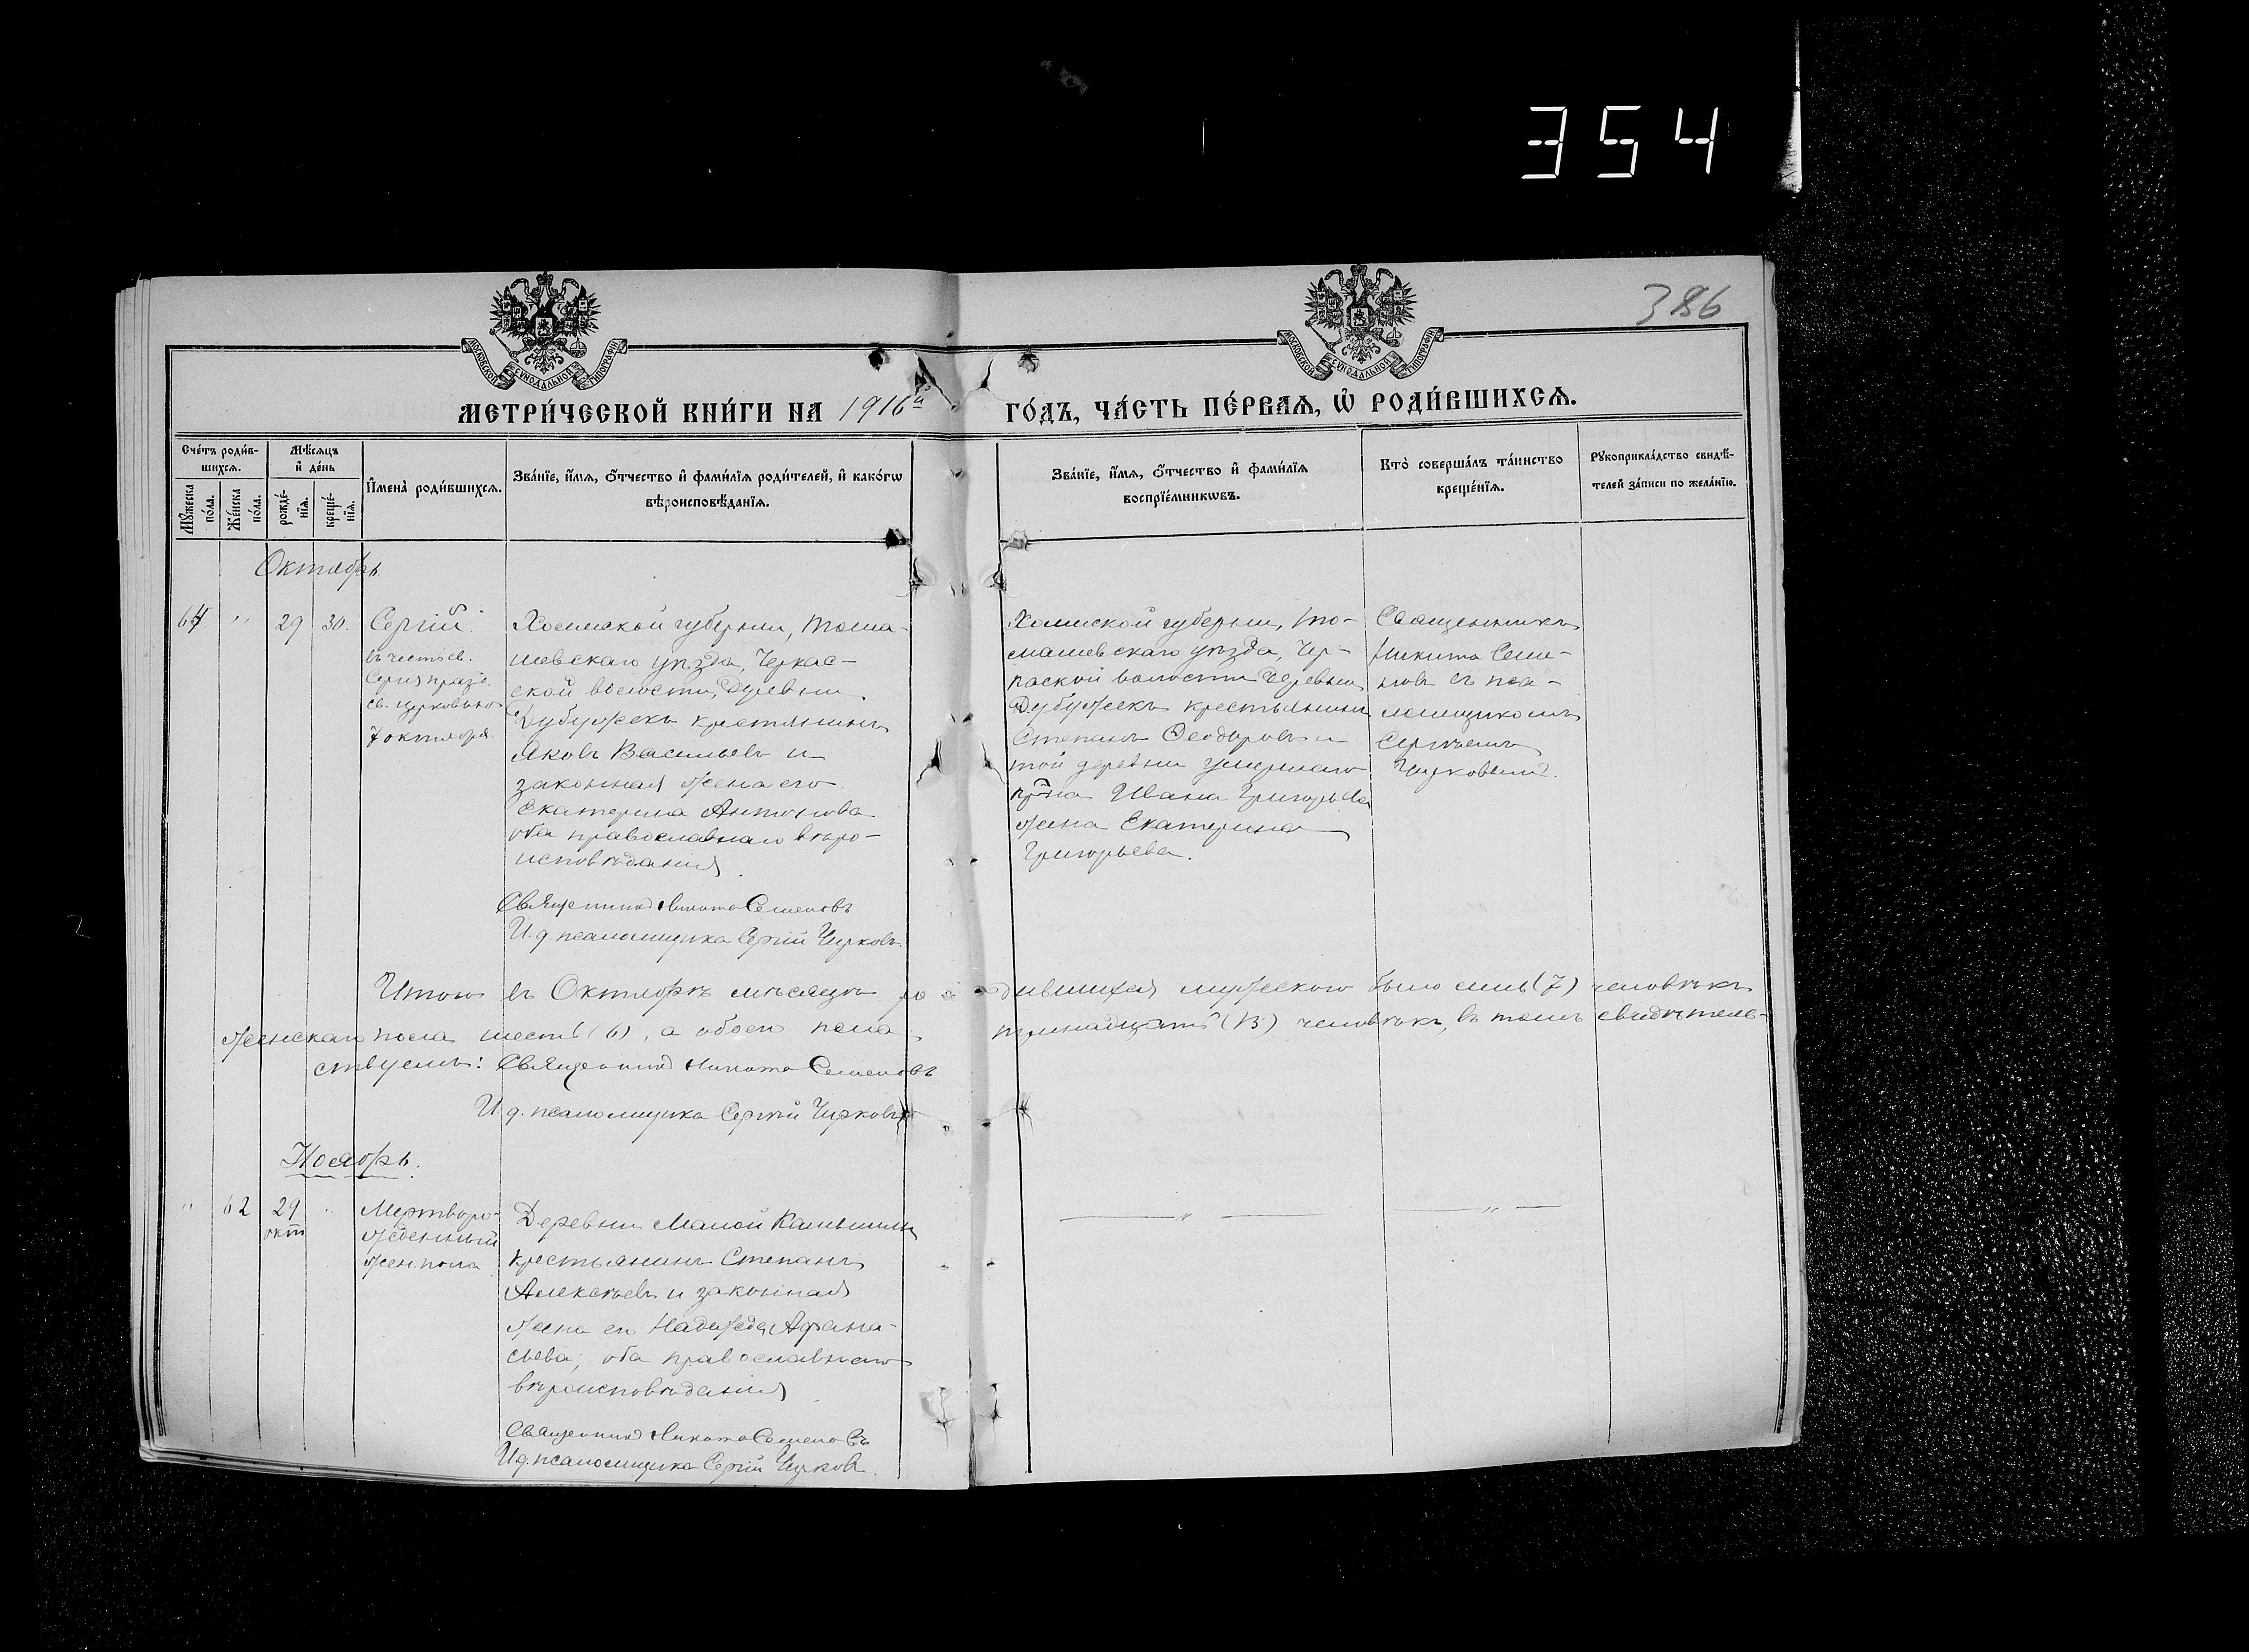 354
386
МОСКОВСКОЙ СУНОДАЛЬНОЙ ТИПОГРАФИИ
МОСКОВСКОЙ СУНОДАЛЬНОЙ ТИПОГРАФИИ
МЕТРИ́ЧЕСКОЙ КНИ́ГИ НА 1916й ГО́ДЪ, ЧА́СТЬ ПЕ́РВАЯ, Ѡ РОДИ́ВШИХСЯ.
Сче́тъ роди́в-
шихся.
Мꙋ́жеска
по́ла.
Же́нска
по́ла.
Мѣ́сяцъ
и҆ де́нь
рожде́-
нїя.
креще́-
нїя.
И҆мена̀ роди́вшихся.
Зва́нїе, и҆́мя, ѻ҆́тчество и҆ фами́лїя роди́телей, и҆ како́гѡ
вѣроисповѣ́данїя.
Зва́нїе, и҆́мя, ѻ҆́тчество и҆ фами́лїя
воспрїе́мникѡвъ.
Кто̀ соверша́лъ та́инство
креще́нїя.
Рꙋкоприкла́дство свидѣ́-
телей за́писи по жела́нїю.
Октябрь.
64 " 29 30.
Сергій
въ честь св.
Сергія празд.
св. церковью
7 октября
Холмской губерніи, Тома-
шевскаго уѣзда, Черкас-
ской волости, деревни
Дубужекъ крестьянинъ
Яковъ Васильевъ и
законная жена его
Екатерина Антонова
оба православнаго вѣро-
исповѣданія.
Священникъ Никита Семеновъ
И. д. псаломщика Сергій Чирковъ.
Холмской губерніи, То-
машевскаго уѣзда, Чер-
каской волости деревни
Дубужекъ крестьянинъ
Степанъ Ѳеодоровъ и
той деревни умершаго
кр-на Ивана Григорьева
жена Екатерина
Григорьева.
Священникъ
Никита Семе-
новъ съ пса-
ломщикомъ
Сергѣемъ
Чирковымъ.
Итого въ Октябрѣ мѣсяцѣ родившихся мужескаго было семь (7) человѣкъ
женскаго пола шесть (6), а обоего пола тринадцать (13) человѣкъ, въ томъ свидѣтель-
ствуемъ: Священникъ Никита Семеновъ
И. д. псаломщика Сергій Чирковъ
Ноябрь.
" 62 29 "
окт
Мертворо-
жденный
жен. пола
Деревни Малой Камышни
крестьянинъ Степанъ
Алексѣевъ и законная
жена его Надежда Афана-
сьева, оба православнаго
вѣроисповѣданія
Священникъ Никита Семеновъ
И. д. псаломщика Сергій Чирковъ.